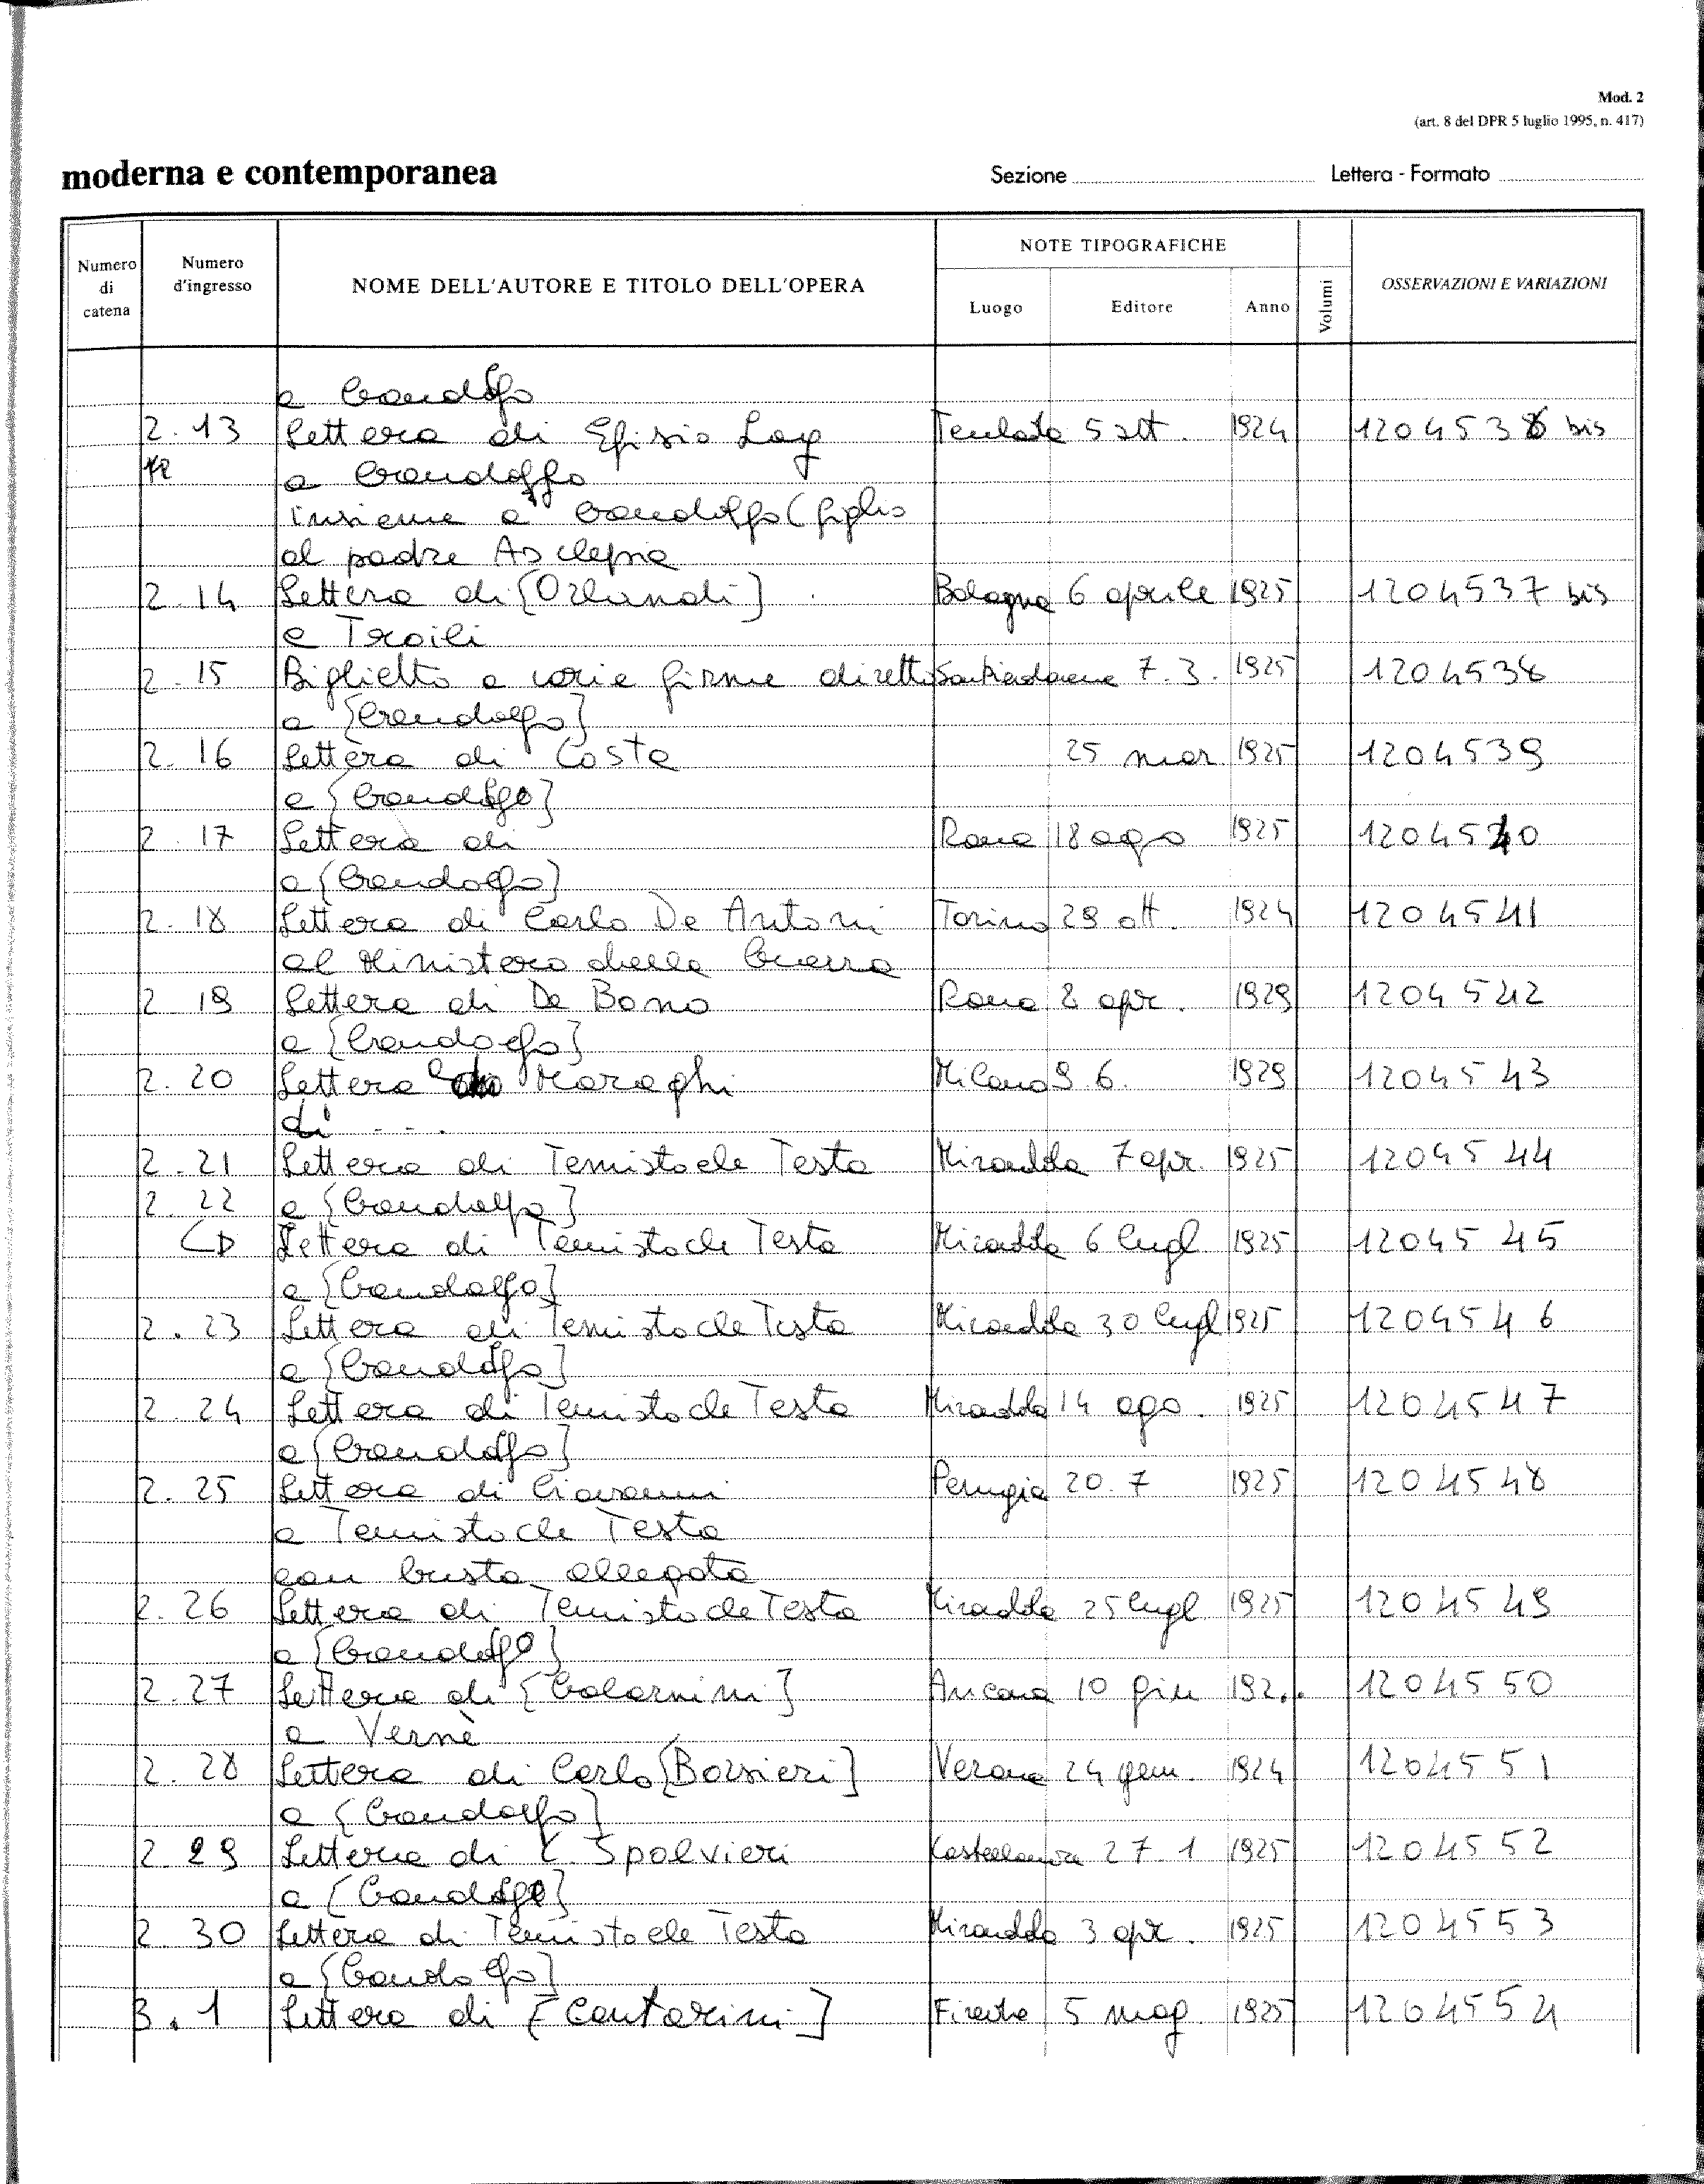 Mod. 2
(art. 8 del DPR 5 luglio 1995, n. 417)
moderna e contemporanea Sezione Lettera - Formato
Numero di catena Numero d'ingresso NOME DELL'AUTORE E TITOLO DELL'OPERA NOTE TIPOGRAFICHE Luogo Editore Anno Volumi OSSERVAZIONI E VARIAZIONI
a Gandolfo
2.13 Lettera di Efisio Lay Teulada 5 sett. 1924 1204536 bis
a Gandolfo
insieme a Gandolfo (figlio
al padre Asclepia
2.14 Lettera di [Orlandi] Bologna 6 aprile 1925 1204537 bis
a Troili
2.15 Biglietto a varie firme diretto 7.3. 1925 1204538
a [Gandolfo]
2.16 Lettera di Costa 25 mar 1925 1204539
a [Gandolfo]
2.17 Lettera di Roma 18 ago 1925 1204540
a [Gandolfo]
2.18 Lettera di Carlo De Antoni Torino 29 ott. 1924 1204541
al Ministero della Guerra
2.19 Lettera di De Bono Roma 2 apr. 1929 1204542
a [Gandolfo]
2.20 Lettera Maraghi Milano 9 6. 1929 1204543
di ...
2.21 Lettera di Temistocle Testa Mirandola 7 apr. 1925 1204544
2.22 a [Gandolfo]
Lettera di Temistocle Testa Mirandola 6 lugl 1925 1204545
a [Gandolfo]
2.23 Lettera di Temistocle Testa Mirandola 30 lugl 1925 1204546
a [Gandolfo]
2.24 Lettera di Temistocle Testa Mirandola 14 ago. 1925 1204547
a [Gandolfo]
2.25 Lettera di Giovanni Perugia 20.7 1925 1204548
a Temistocle Testa
con busta allegata
2.26 Lettera di Temistocle Testa Mirandola 25 lugl 1925 1204549
a [Gandolfo]
2.27 Lettera di [Golarnini] Ancona 10 giu 192.. 1204550
a Vernè
2.28 Lettera di Carlo [Borsieri] Verona 24 gen. 1924 1204551
a [Gandolfo]
2.29 Lettera di Spolvieri 27.1 1925 1204552
a [Gandolfo]
2.30 Lettera di Temistocle Testa Mirandola 3 apr. 1925 1204553
a [Gandolfo]
3.1 Lettera di [Contarini] Firenze 5 mag. 1925 1204554